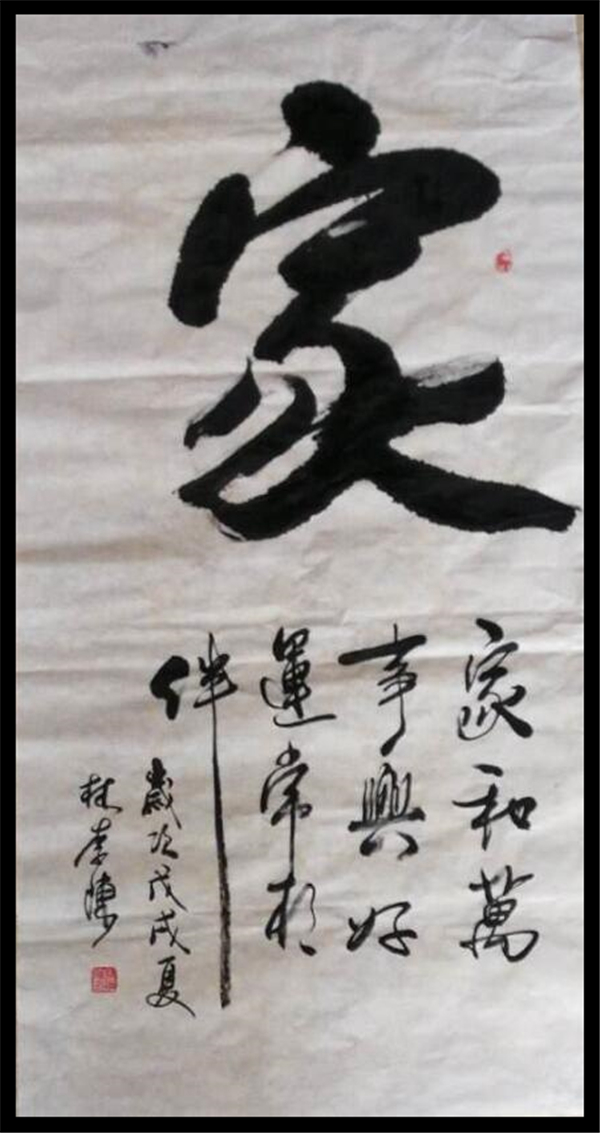 家
家和萬
事興好
運常相
伴
歲次戊戌夏
李陳